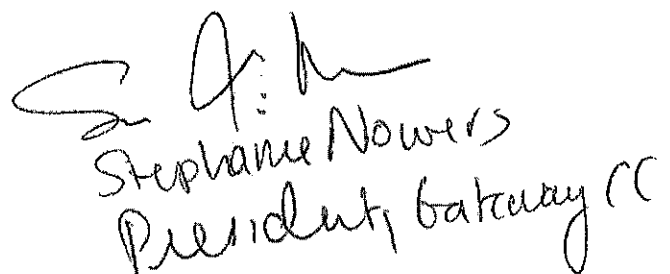 Stephanie Nowers
President, Gateway CC